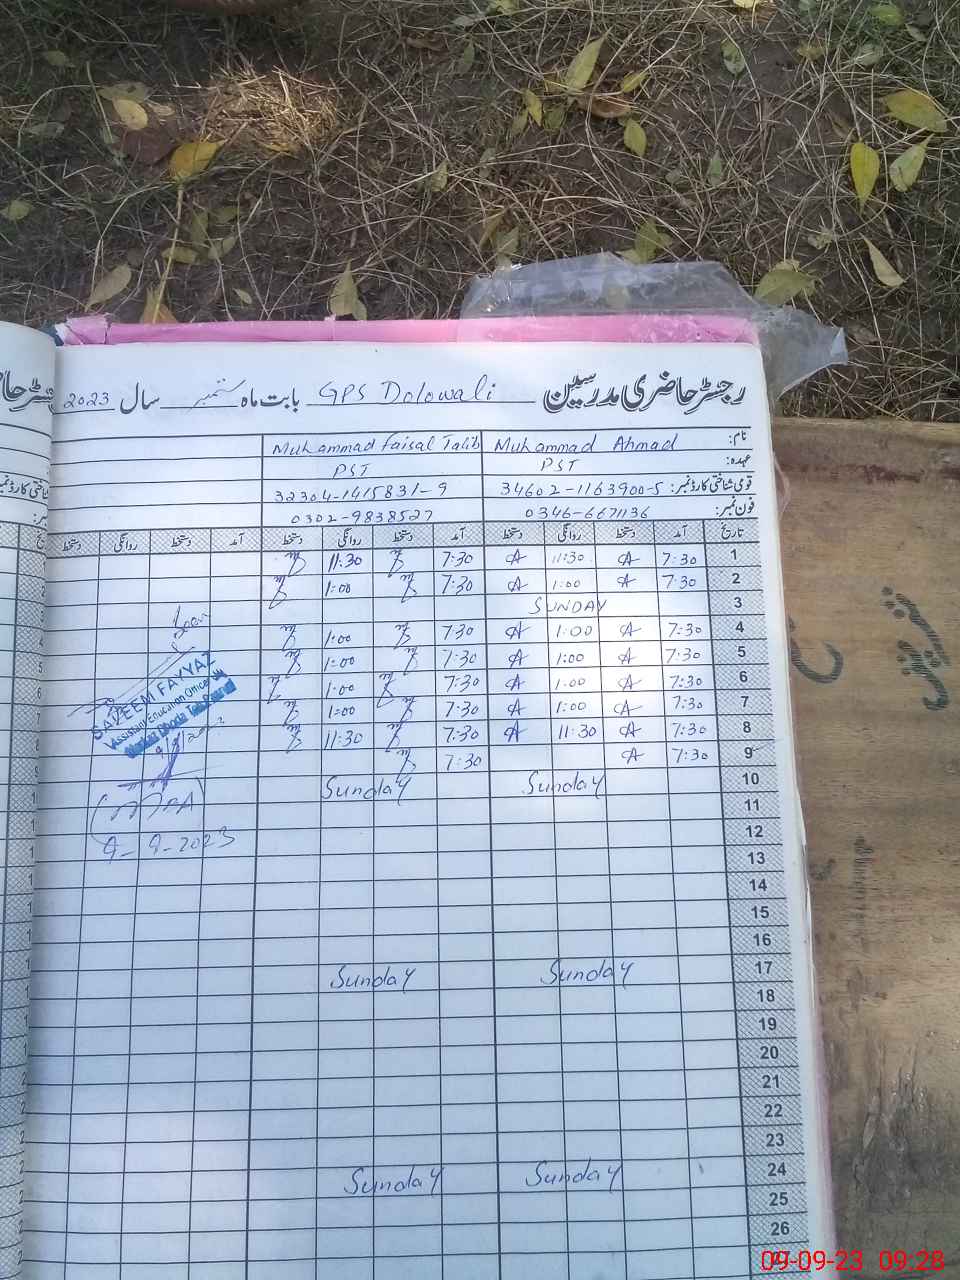 رجسٹر حاضری مدرسین GPS Dolowali بابت ماہ ستمبر سال 2023
نام: Muhammad Ahmad Muhammad Faisal Talib
عہدہ: PST PST
قومی شناختی کارڈ نمبر: 34602-1163900-5 32304-1415831-9
فون نمبر: 0346-6671136 0302-9838527
تاریخ آمد دستخط روانگی دستخط آمد دستخط روانگی دستخط آمد دستخط روانگی دستخط
1 7:30 A 11:30 A 7:30 11:30
2 7:30 A 1:00 A 7:30 1:00
3 SUNDAY
4 7:30 A 1:00 A 7:30 1:00
5 7:30 A 1:00 A 7:30 1:00
6 7:30 A 1:00 A 7:30 1:00
7 7:30 A 1:00 A 7:30 1:00
8 7:30 A 11:30 A 7:30 11:30
9 7:30 A 7:30
10 Sunday Sunday
11
12
13
14
15
16
17 Sunday Sunday
18
19
20
21
22
23
24 Sunday Sunday
25
26
SALEEM FAYYAZ
Assistant Education Officer
9-9-2023
09-09-23 09:28